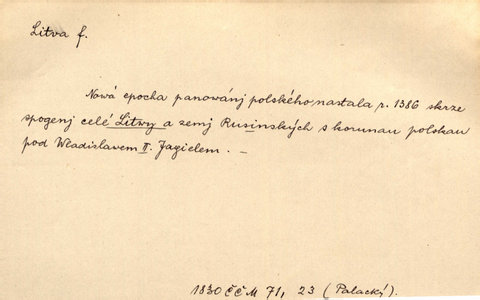 Litva f.
Nová epocha panowánj polského nastala r. 1386 skrze
spogenj celé Litwy a zemj Rusinských s korunau polskau
pod Wladislavem II. Jagielem. —
1830 ČČM 71, 23 (Palacký).